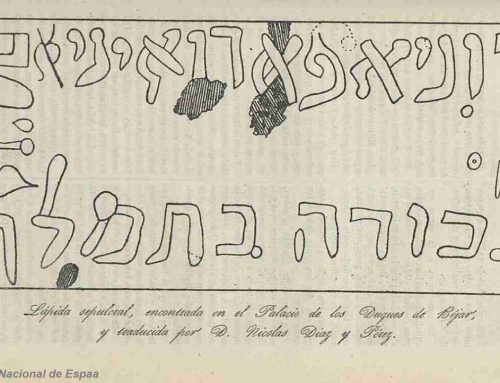 דוניא פאדואיניא
כבודה בת מלך
Lápida sepulcral, encontrada en el Palacio de los Duques de Béjar,
y traducida por D. Nicolas Diaz y Pérez.
Nacional de Espaa